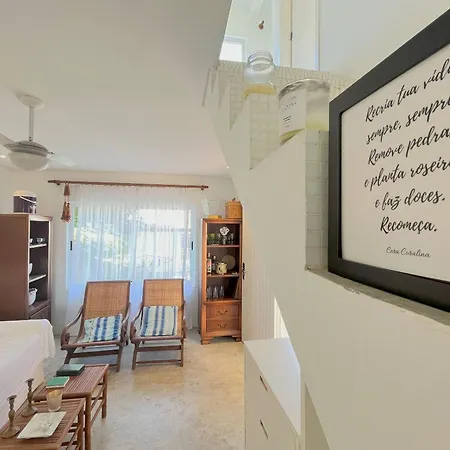 Recria tua vida,
sempre, sempre.
Remove pedras
e planta roseiras
e faz doces.
Recomeça.
Cora Coralina